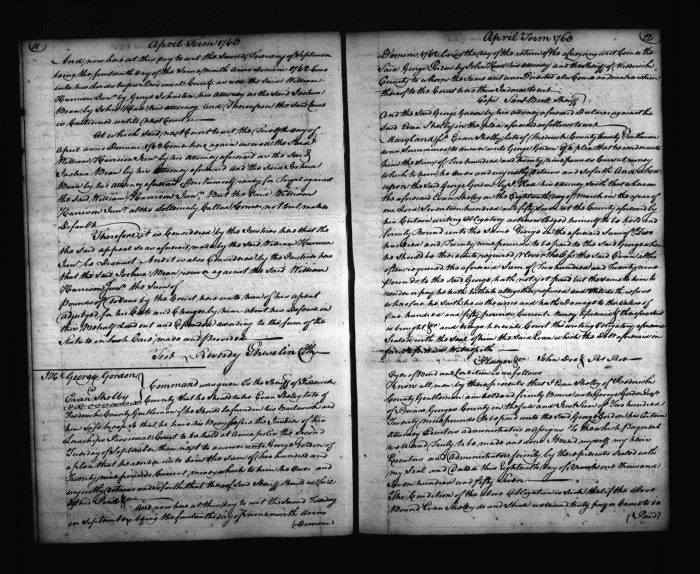 11
April Term 1763
And now here at this day to wit the Second Tuesday of September
being the fourteenth day of the Same Month anno Domini 1762 Come
into his Lordships Provincial Court as well the Said William
Harrison Junr. by George Johnston his attorney as the Said Joshua
Bean by his attorney and Thereupon the Said Cause
is Continued until next Court
At which Said next Court to wit the Twelfth day of
April anno Domini 1763 Come here again as well the Said
William Harrison Junr by his attorney aforesaid as the Said
Joshua Bean by his attorney aforesaid and the Said Joshua
Bean by his attorney aforesaid Offers himself ready for Tryal against
the Said William Harrison Junr But the Said William
Harrison Junr altho Solemnly Called Comes not but makes
Default
Therefore it is Considered by the Justices here that the
the Said appeal So as aforesaid made by the Said William Harrison
Junr be dismist And it is also Considered by the Justices here
that the Said Joshua Bean recover against the Said William
Harrison Junr the Sum of
pounds of Tobacco by the Court here unto him of his assent
adjudged for his Costs and Charges by him about his Defence in
this Behalf Laid out and Expended according to the form of the
Statute in Such Case made and Provided
Test Reverdy Ghiselin Clk
George Gordon
Evan Shelby
Command was given to the Sheriff of Frederick
County that he Should take Evan Shelby late of
Frederick County Gentleman if he Should be found in his Bailiwick and
him Safe keep so that he have his Body before the Justices of his
Lordships Provincial Court to be held at Annapolis the Second
Tuesday of September then next to answer unto George Gordon of
a plea that he render unto him the Sum of two hundred and
Twenty nine pounds Current money which to him he Owes and
unjustly detains and So forth
And now here at this day to wit the Second Tuesday
in September being the fourteenth day of Same month Anno
(Domini
12
April Term 1763
Domini 1762 being the day of the return of the aforesaid writ Comes the
Said George Gordon by John his attorney and the Sheriff of Frederick
County to whom the Same writ was Directed also Comes and makes return
thereof to the Court here thus Indorsed to wit
Cepi Saml Beall Sheriff
And the Said George Gordon by his attorney aforesaid Declares against the
Said Evan Shelby in the plea aforesaid as follows to wit
Maryland Evan Shelby late of Frederick County Gentleman
was Summoned to answer unto George Gordon of a plea that he render unto
him the Sum of Two hundred and twenty nine pounds Current money
which to him he Owes and unjustly detains and So forth And whereupon
upon the Said George Gordon by his attorney Saith that whereas
the aforesaid Evan Shelby on the Eighteenth day of March in the year of
our Lord Seventeen hundred and fifty Seven at the County aforesaid by
his Certain writing Obligatory acknowledged himself to be held and
firmly Bound unto the Same George in the aforesaid Sum of Two
hundred and Twenty nine pounds to be paid to the Said George when
he Should be thereunto required Nevertheless the Said Evan altho
often required the aforesaid Sum of Two hundred and Twenty nine
pounds to the Said George hath not yet paid but the Same to him to
render or pay he hath hitherto altogether refused and Still doth refuse
wherefore he Saith he is the worse and hath Damage to the Value of
One hundred and fifty pounds Current money aforesaid & thereupon Suit
is brought & and brings here into Court the writing Obligatory aforesaid
Sealed with the Seal of him the Said Evan which the Debt aforesaid in
form aforesaid Testifyeth
Pledges &c John Doe & Rd Roe
Copy of Bond and Condition is as follows
Know all men by these presents that I Evan Shelby of Frederick
County Gentleman am held and firmly Bound unto George Gordon Esqr
of Prince Georges County in the full and Just Sum of Two hundred
Twenty nine pounds to be paid unto the Said George Gordon his Certain
Attorney Executors administrators or assigns To the which Payment
well and Truly to be made and done I bind myself my heirs
Executors and administrators firmly by these presents Sealed with
my Seal and Dated this Eighteenth day of March one thousand
Seven hundred and fifty Seven
The Condition of the above Obligation is Such that if the above
Bound Evan Shelby do and Shall well and truly pay or Cause to be
(Paid)